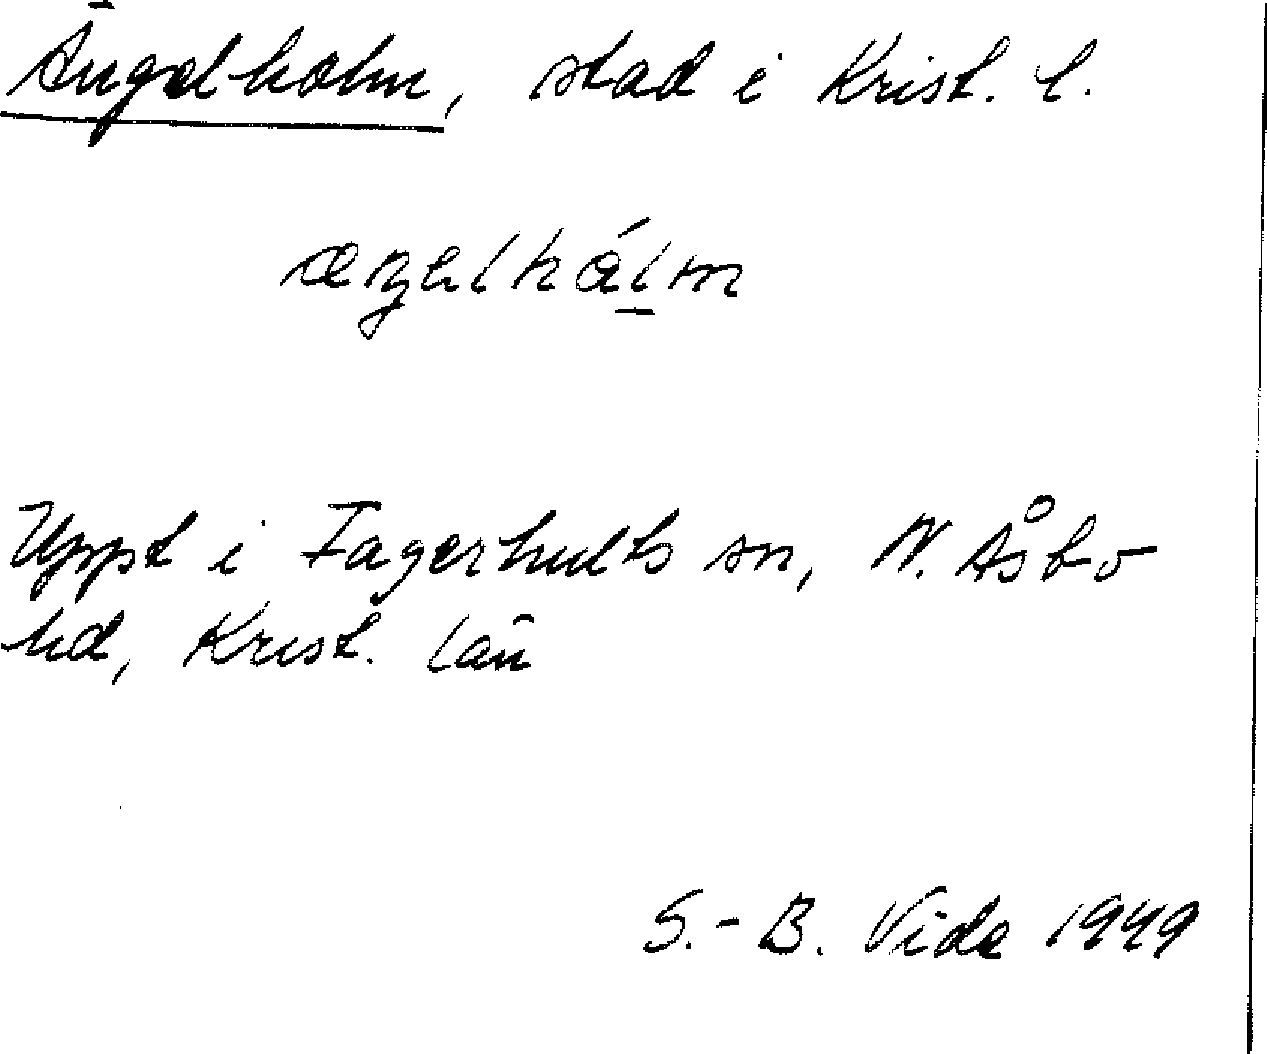 Ängelholm, stad i Krist. l.
æŋelhál̲m
Uppt i Fagerhults sn, N. Åsbo
hd, Krist. län
S.-B. Vide 1949